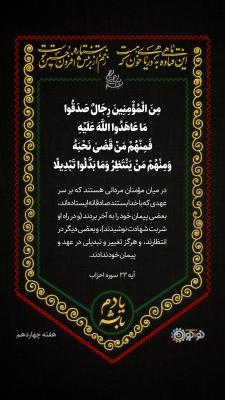 این فتاده به دریای خون که
مِنَ الْمُؤْمِنِينَ رِجَالٌ صَدَقُوا
مَا عَاهَدُوا اللَّهَ عَلَيْهِ
فَمِنْهُمْ مَنْ قَضَىٰ نَحْبَهُ
وَمِنْهُمْ مَنْ يَنْتَظِرُ وَمَا بَدَّلُوا تَبْدِيلًا
در میان مؤمنان مردانی هستند که بر سر
عهدی که با خدا بستند صادقانه ایستاده‌اند،
بعضی پیمان خود را به آخر بردند (و در راه او
شربت شهادت نوشیدند)، و بعضی دیگر در
انتظارند، و هرگز تغییر و تبدیلی در عهد و
پیمان خود ندادند.
آیه ۲۳ سوره احزاب
هفته چهاردهم